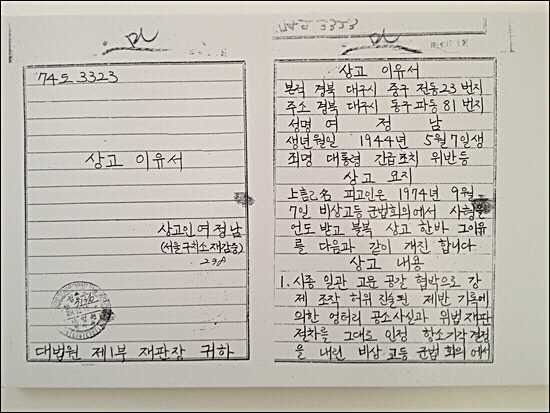 74도 3323
상고 이유서
상고인 여정남
(서울구치소 재감중)
대법원 제1부 재판장 귀하
74도 3323
상고 이유서
본적 경북 대구시 중구 전동 23 번지
주소 경북 대구시 동구 파동 81 번지
성명 여 정 남
생년월일 1944年 5월 7일생
죄명 대통령 긴급조치 위반등
상고 요지
上記名 피고인은 1974年 9월
7일 비상고등 군법회의에서 사형을
언도 받고 불복 상고 한바 그 이유
를 다음과 같이 개진 합니다
상고 내용
1. 시종 일관 고문 공갈 협박으로 강
제 조작 허위 진술된 제반 기록에
의한 엉터리 공소사실과 위법 재판
절차를 그대로 인정 항소기각 결정
을 내린 비상 고등 군법 회의에서